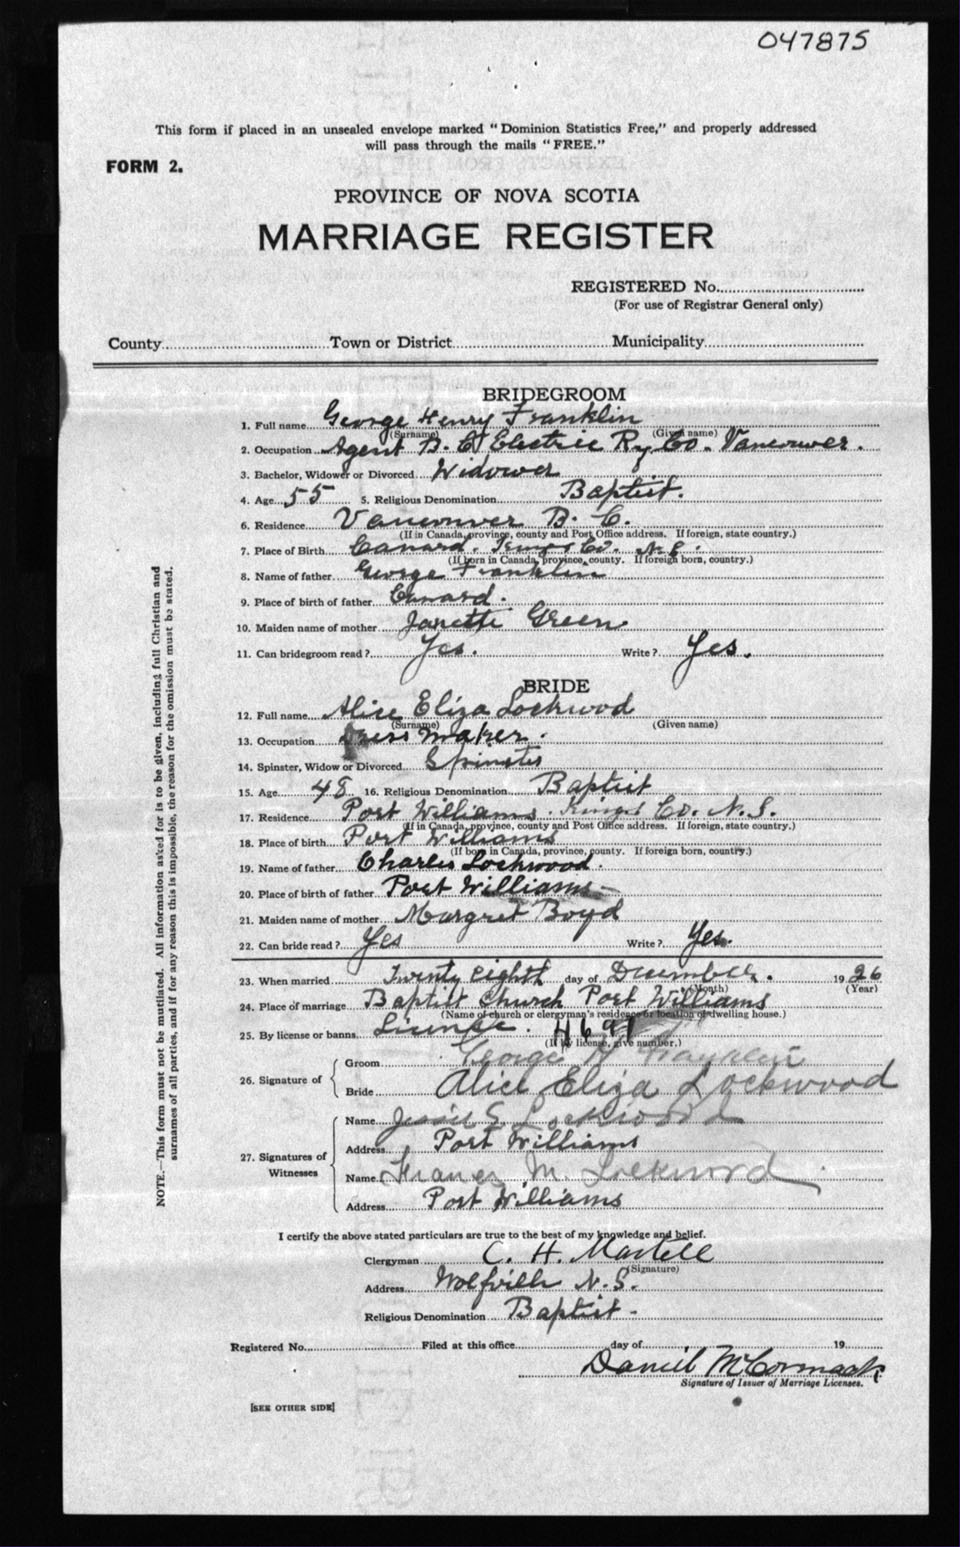 047875
This form if placed in an unsealed envelope marked "Dominion Statistics Free," and properly addressed
will pass through the mails "FREE."
FORM 2.
PROVINCE OF NOVA SCOTIA
MARRIAGE REGISTER
REGISTERED No.
(For use of Registrar General only)
County Town or District Municipality
BRIDEGROOM
1. Full name George Henry Franklin
(Surname) (Given name)
2. Occupation Agent B. C. Electric Ry Co. Vancouver.
3. Bachelor, Widower or Divorced Widower
4. Age 55 5. Religious Denomination Baptist.
6. Residence Vancouver B. C.
(If in Canada, province, county and Post Office address. If foreign, state country.)
7. Place of Birth Canard. Kings Co. N. S.
(If born in Canada, province, county. If foreign born, country.)
8. Name of father George Franklin
9. Place of birth of father Canard.
10. Maiden name of mother Janette Green
11. Can bridegroom read? Yes. Write? Yes.
BRIDE
12. Full name Alice Eliza Lockwood
(Surname) (Given name)
13. Occupation Dress maker.
14. Spinster, Widow or Divorced Spinster
15. Age 48 16. Religious Denomination Baptist
17. Residence Port Williams. Kings Co. N. S.
(If in Canada, province, county and Post Office address. If foreign, state country.)
18. Place of birth Port Williams
(If born in Canada, province, county. If foreign born, country.)
19. Name of father Charles Lockwood.
20. Place of birth of father Port Williams
21. Maiden name of mother Margret Boyd
22. Can bride read? Yes Write? Yes.
23. When married Twenty eighth day of December. 1926
(Month) (Year)
24. Place of marriage Baptist Church Port Williams
(Name of church or clergyman's residence or location of dwelling house.)
25. By license or banns License.
(If by license, give number.)
26. Signature of
Groom George H Franklin
Bride Alice Eliza Lockwood
27. Signatures of Witnesses
Name Jessie S Lockwood
Address Port Williams
Name M. Lockwood
Address Port Williams
I certify the above stated particulars are true to the best of my knowledge and belief.
Clergyman C. H. Martell
(Signature)
Address Wolfville N. S.
Religious Denomination Baptist -
Registered No. Filed at this office day of 19
Daniel McCormack
Signature of Issuer of Marriage Licenses.
[SEE OTHER SIDE]
NOTE.—This form must not be mutilated. All information asked for is to be given, including full Christian and
surnames of all parties, and if for any reason this is impossible, the reason for the omission must be stated.